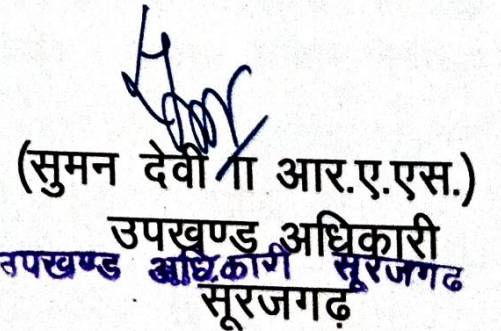 (सुमन देवी ाा आर.ए.एस.)
उपखण्ड अधिकारी
उपखण्ड अधिकारी सूरजगढ
सूरजगढ़